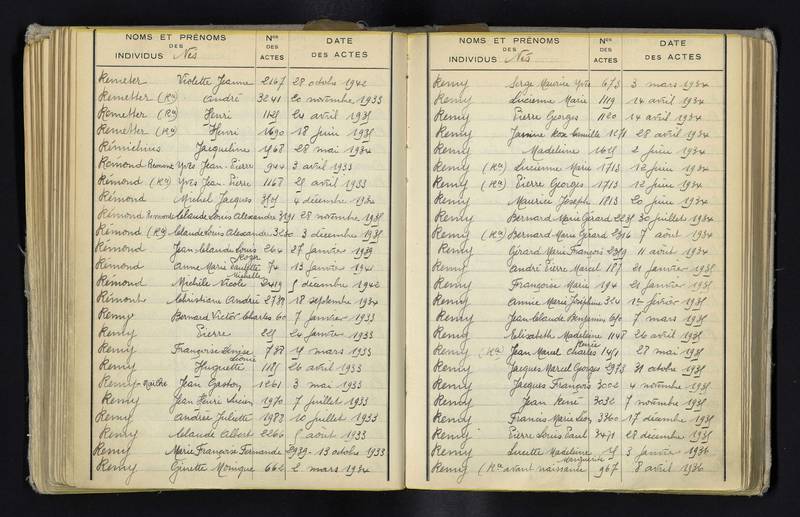 NOMS ET PRÉNOMS
DES
INDIVIDUS Nés
Nos
DES
ACTES
DATE
DES ACTES
Remeter Violette Jeanne 2167 28 octobre 1942
Remetter (Rn) André 3241 20 novembre 1933
Remetter (Rn) Henri 24 avril 1935
Remetter (Rn) Henri 1690 18 juin 1935
Rémichius Jacqueline 28 mai 1934
Rémond Yves Jean Pierre 944 3 avril 1933
Rémond (Rn) Yves Jean Pierre 1167 avril 1933
Rémond Michel Jacques 4 décembre
Rémond Claude Louis Alexandre 28 novembre 1935
Rémond (Rn) Claude Louis Alexandre 3 décembre 1935
Rémond Jean Claude Louis 264 27 janvier 1939
Roger
Rémond Anne Marie Paulette 74 13 janvier 1941
Michelle
Rémond Michèle Nicole 2419 5 décembre 1942
Rémont Christiane Andrée 18 septembre 1934
Remy Bernard Victor Charles 60 7 janvier 1933
Remy Pierre 24 janvier 1933
Remy Françoise 788 mars 1933
Léonie
Remy Huguette 26 avril 1933
Remy Jean Gaston 1261 3 mai 1933
Remy Jean Henri Lucien 1970 7 juillet 1933
Remy Andrée Juliette 1988 10 juillet 1933
Remy Claude Albert 2266 5 août 1933
Remy Marie Françoise Fernande 2939 13 octobre 1933
Remy Ginette Monique 662 2 mars 1934
NOMS ET PRÉNOMS
DES
INDIVIDUS Nés
Nos
DES
ACTES
DATE
DES ACTES
Remy Serge Maurice Yves 673 3 mars 1934
Remy Lucienne Marie 1119 14 avril 1934
Remy Pierre Georges 1120 14 avril 1934
Remy Janine Camille 28 avril 1934
Remy Madeleine 2 juin 1934
Remy (Rn) Lucienne Marie 1713 12 juin 1934
Remy (Rn) Pierre Georges 1713 12 juin 1934
Remy Maurice Joseph 1813 20 juin 1934
Remy Bernard Marie Gérard 30 juillet 1934
Remy (Rn) Bernard Marie Gérard 2316 7 août 1934
Remy Gérard Marie François 11 août 1934
Remy André Pierre Marcel 187 21 janvier 1935
Remy Françoise Marie 194 21 janvier 1935
Remy Annie Marie Joséphine 324 1er février 1935
Remy Jean Claude Benjamin 7 mars 1935
Remy Elisabeth Madeleine 1148 26 avril 1935
Renée
Remy (Rn) Jean Marcel Charles 28 mai 1935
Remy Jacques Marcel Georges 2973 31 octobre 1935
Remy Jacques François 3002 4 novembre 1935
Remy Jean René 3032 7 novembre 1935
Remy Francis Marie Léon 3360 17 décembre 1935
Remy Pierre Louis Paul 3471 28 décembre 1935
Remy Lucette Madeleine 3 janvier 1936
Marguerite
Remy (Rn avant naissance) 967 8 avril 1936